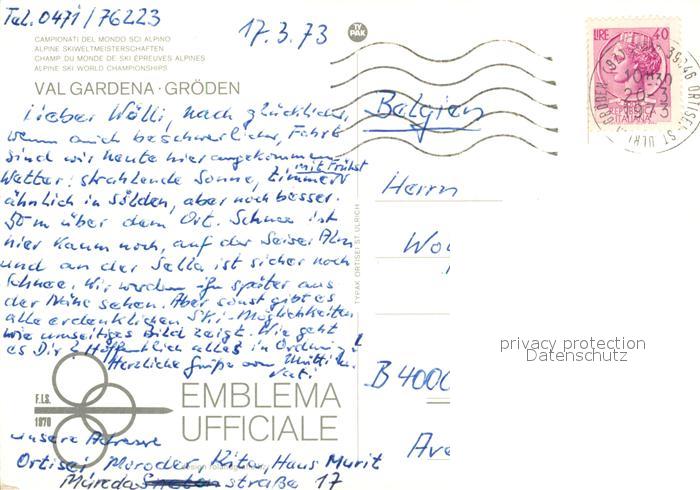 Tel. 0471/76223
17.3.73
TYPAK
CAMPIONATI DEL MONDO SCI ALPINO
ALPINE SKIWELTMEISTERSCHAFTEN
CHAMP. DU MONDE DE SKI ÉPREUVES ALPINES
ALPINE SKI WORLD CHAMPIONSHIPS
VAL GARDENA · GRÖDEN
Lieber Wölli, nach glücklicher,
wenn auch beschwerlicher, Fahrt
sind wir heute hier angekommen
mit Frühst
Wetter: strahlende Sonne, Zimmer
ähnlich in Sölden, aber noch besser.
50 m über dem Ort. Schnee ist
hier kaum noch, auf der Seiser Alm
und an der Sella ist sicher noch
Schnee. Wir werden ihn später aus
der Nähe sehen. Aber sonst gibt es
alle erdenklichen Ski-Möglichkeiten
wie umseitiges Bild zeigt. Wie geht
es Dir? Hoffentlich alles in Ordnung!
Herzliche Grüße von Mutti u.
Vati
F.I.S.
1970
EMBLEMA
UFFICIALE
unsere Adresse
Ortisei Moroder, Rita, Haus Murit
Mureda straße 17
TYPAK ORTISEI ST. ULRICH
LIRE 40
ITALIANA
10H30
20-3
1973
39046 ORTISEI-ST. ULRICH
Belgien
Herrn
Wo
B 4000
Ave
privacy protection
Datenschutz